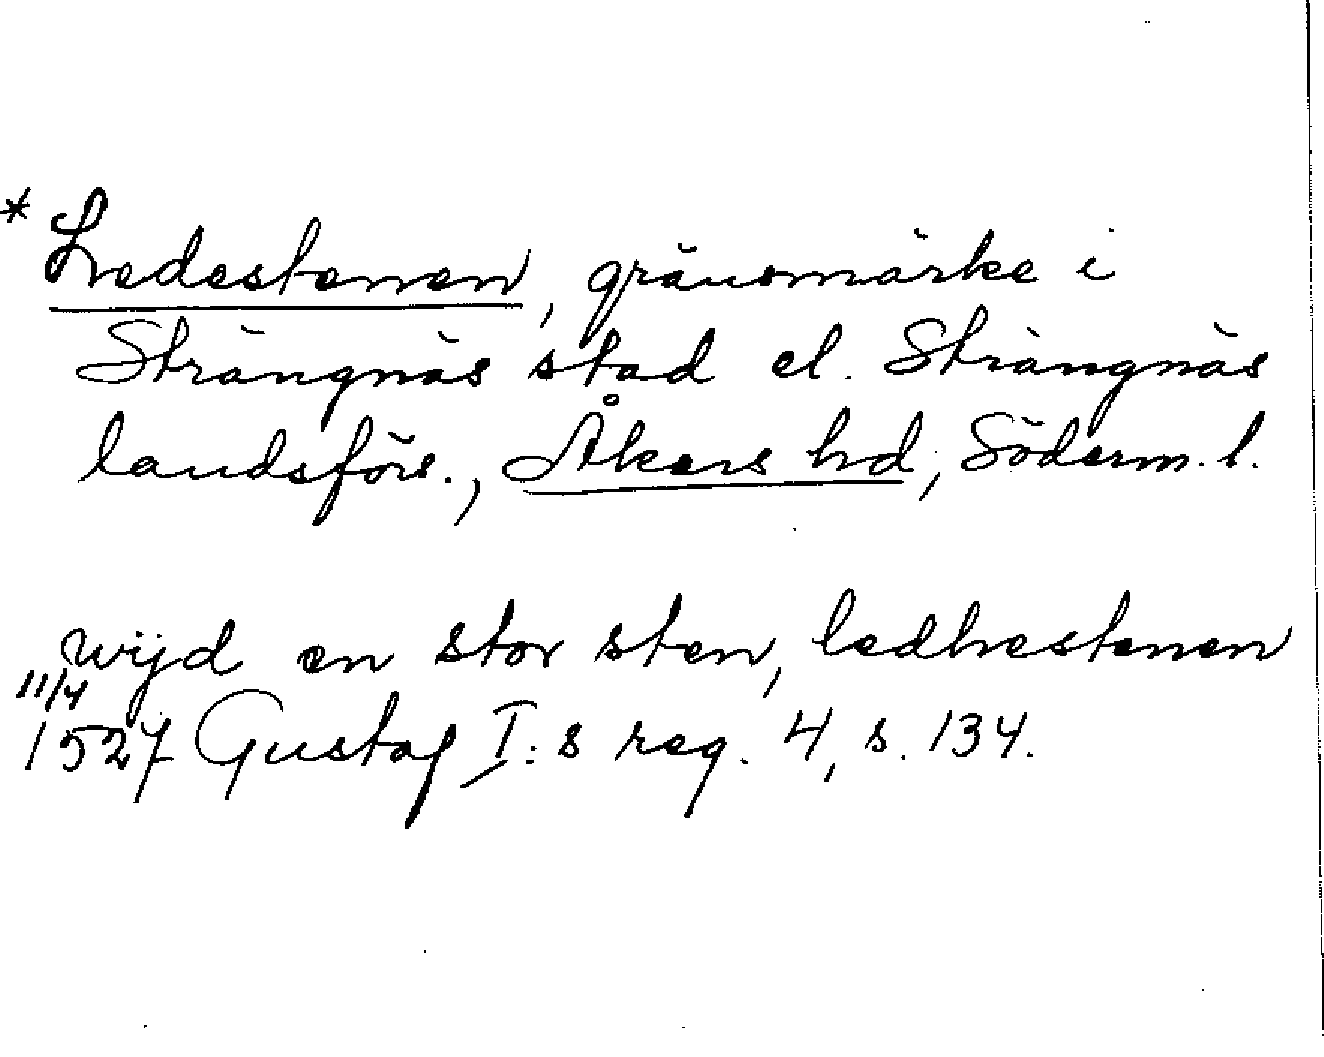 * Ledestenen, gränsmärke i
Strängnäs stad el. Strängnäs
landsförs., Åkers hd, Söderm. l.
wijd en stor sten, ledhestenen
11/4
1527 Gustaf I:s reg. 4, s. 134.